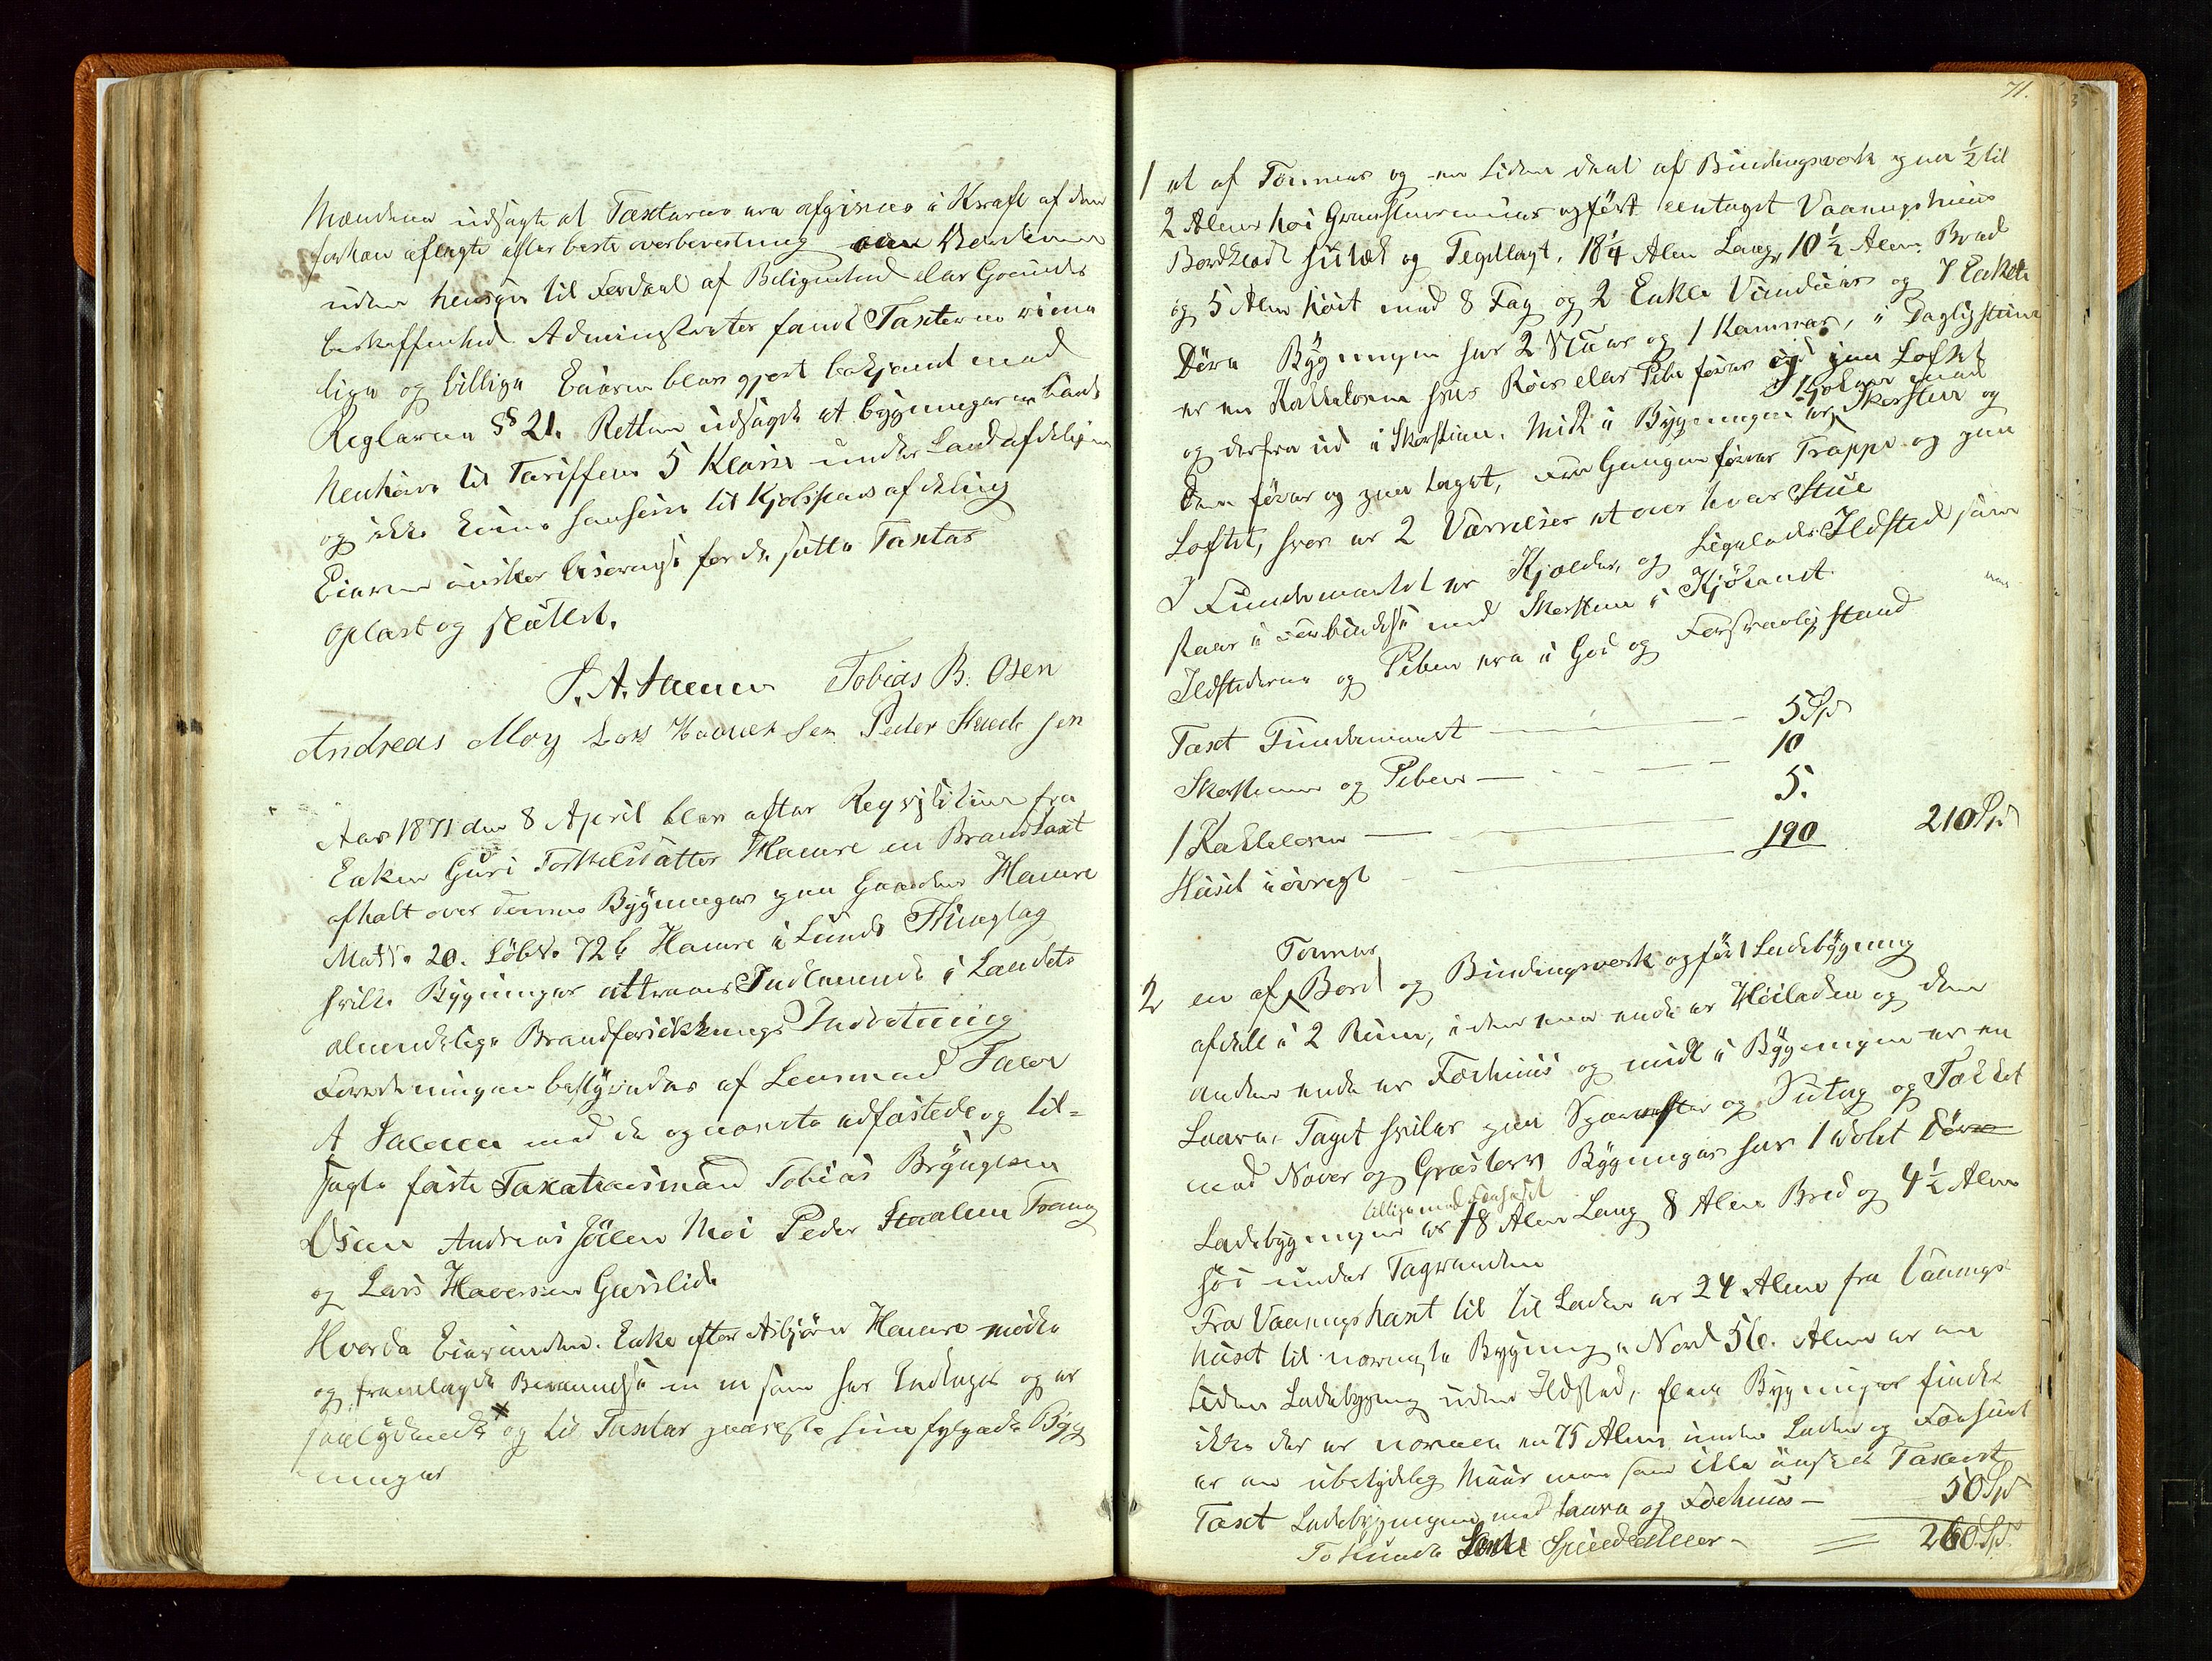 Mændene udsagte at Taxterne ere afgivne i Kraft af den
forhen aflagte efter beste overbevisning
uden hensyn til Fordeel af Beliggenhed eller Grundes
beskaffenhed Administrator fandt Taxterne rime
lige og billige Eieren blev gjort bekjendt med
Reglerne §§ 21. Retten udsagde at bygningerne
Henhøre til Tariffens 5 Klasse under Landafdelingen
og ikke kunne henføres til Kjøbstads afdeling
Eieren ønsker bisvergit for de satte Taxter
Oplæst og sluttet.
T. A. Tobias B. Osen
Andreas Moy Lars Haaver sen Peder sen
Aar 1871 den 8 April blev efter Reqvisition fra
Enken Guri Torkelsdatter Hamre en Brandtaxt
afholt over dennes Bygninger paa Gaarden Hamre
Mat No 20. Løb No 72 b Hamre i Lunds Thinglag
hvilke Bygninger attraaes Indlemmede i Landets
almindelige Brandforsikkrings Indretning
Forretningen bestyredes af Lensmand
A med de opnævnte edfæstede og til-
sagte faste Taxationsmænd Tobias Bryngelsen
Osen Andreas Moi Peder
og Lars Haaversen Gursli
Hvorda Eierinden. Enke efter Asbjørn Hamre mødte
og fremlagde
saalydende og til Taxter følgende Byg
ninger
71.
1 et af Tømmer og en liden deel af Bindingsverk paa ½ til
2 Alens høi Graastensmuur opført eentaget Vaaningshuus
Bordklædt og Teglagt, 18¼ Alen Lang, 10½ Alen Bred
og 5 Alen høit med 8 Fag og 2 Enkle Vinduer og 7 Enkle
Døre Bygningen har 2 Stuer og 1 Kammer, i Dagligstuen
er en Kakkelovn hvis Røer eller Pibe fører op paa Loftet
og derfra ud i Skorsten. Midt i Bygningen er Skorsten og
den fører op gjen taget, Fra Gangen fører Trappe op paa
Loftet, hvor er 2 Værelser et over hver Stue
I Fundamentet er Kjælder, og Ligeledes Ildsted som
staar i Forbindelse med Skorsten i Kjøkenet
Ildstederne og Piben ere i God og Forsvarlig stand
Taxt Fundamentet — — 5 Spd
Skorstenen og Piben — — 10
1 Kakkelovn — — 5.
Huset i øvrigt — 190 210 Spd
Tømmer
2 en af Bord og Bindingsverk opført Ladebygning
afdelt i 2 Rum, i den ene ende er Høiladen og den
anden ende er Fæhuus og midt i Bygningen er en
Laave. Taget hviler paa Sperrer og Sutag og Tækket
med Næver og Græstørv Bygningen har 1 dobl Døre
tilligemed Fæhuset
Ladebygningen er 18 Alen Lang 8 Alen Bred og 4½ Alen
høi under Tagranden
Fra Vaaningshuset til til Laden er 24 Alen fra Vaanings
huset til nærmeste Bygning i Nord 56. Alen er en
liden Ladebygning uden Ildsted, flere Bygninger findes
ikke der er nærmere en 75 Alen under Laden og Fæhuset
er en ubetydelig Muur men som ikke ønskes Taxeret
Taxt Ladebygningen med Laave og Fæhuus — 50 Spd
To Hundre Sexti Speciedaler — 260 Spd